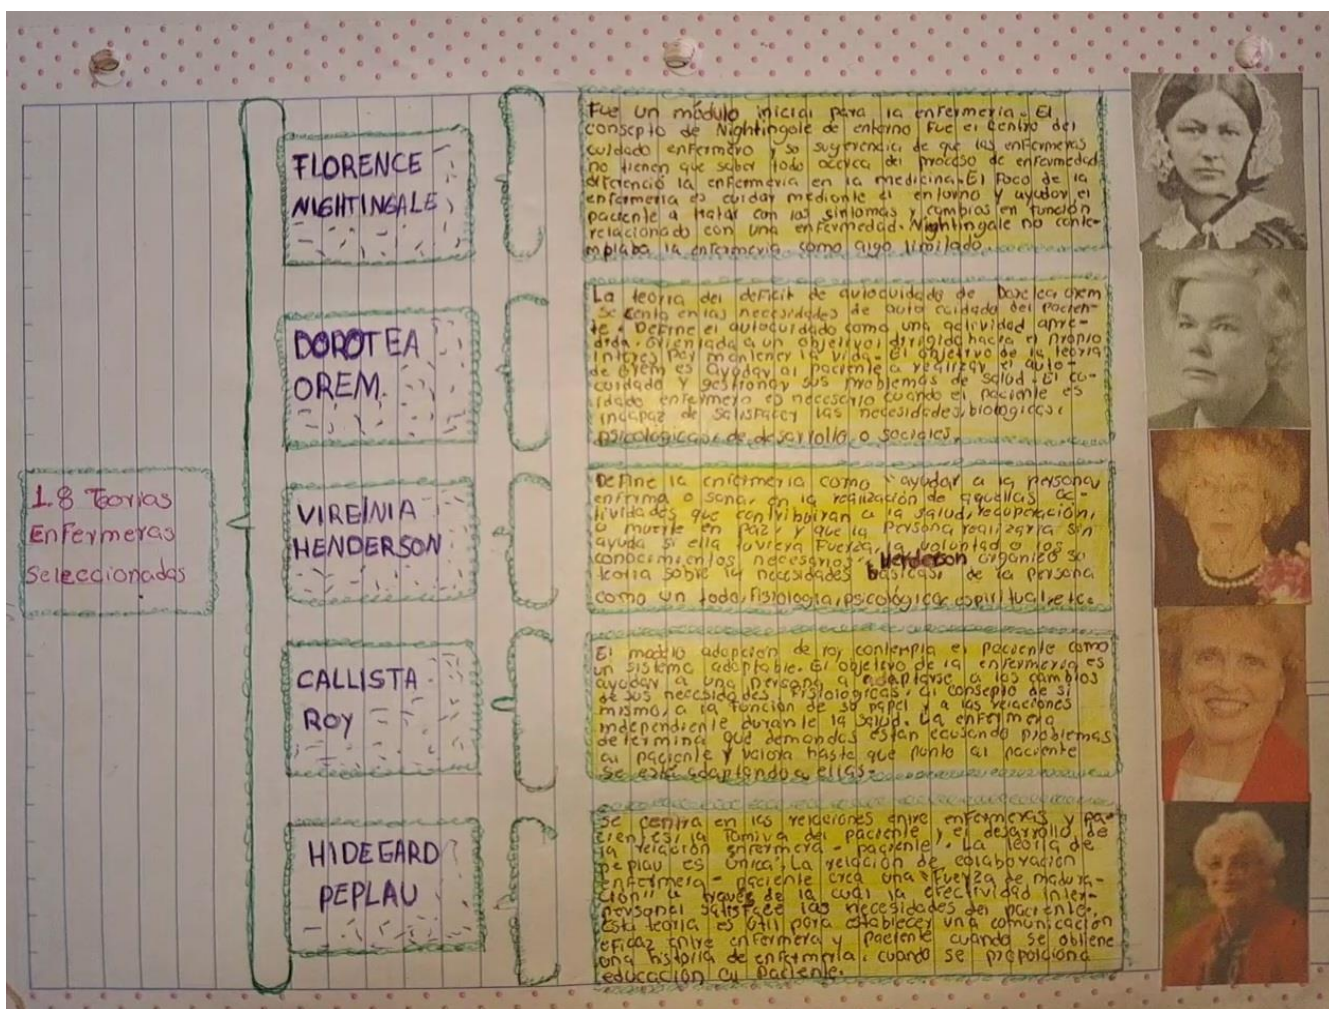 1.8 Teorias
Enfermeras
Seleccionadas
FLORENCE
NIGHTINGALE
Fue un módulo inicial para la enfermeria. El
consepto de Nightingale de entorno Fue el Centro del
cuidado enfermero y so sugerencia de que las enfermeras
no tienen que saber todo acerca del proceso de enfermedad
diferenció la enfermeria en la medicina. El Foco de la
enfermeria es cuidar mediante el entorno y ayudar el
paciente a tratar con los sintomas y cambios en función
relacionado con una enfermedad. Nightingale no conte-
mplaba la enfermeria como algo limitado.
DOROTEA
OREM.
La teoria del deficit de autocuidado de Dorotea orem
se centa en las necesidades de auto cuidado del pacien-
te. Define el autocuidado como una actividad apre-
dida. orientada a un objetivo, dirigida hacia el propio
interes por mantener la vida. El objetivo de la teoria
de orem es ayudar al paciente a realizar el auto-
cuidado y gestionar sus problemas de salud. El cu-
idado enfermero es necesario cuando el paciente es
incapaz de satisfacer las necesidades, biologicas,
psicológicas, de desarrollo, o sociales.
VIREINIA
HENDERSON
Define la enfermeria como "ayudar a la persona
enferma o sana, en la realización de aquellas ac-
tividades que contribuiran a la salud, recuperación,
o muerte en paz, y que la persona realizaria sin
ayuda si ella tuviera Fuerza, la voluntad o los
conocimientos necesarios. Herderson organico su
teoria sobre las necesidades basicas, de la persona
como un todo, fisiologia, psicológica, espiritual, etc.
CALLISTA
ROY
El modelo adopcion de roy contempla el paciente como
un sistema adoptable. El objetivo de la enfermeria es
ayudar a una persona a adaptarse a los cambios
de sus necesidades fisiologicas, al consepto de si
mismo, a la función de su papel y a las relaciones
independiente durante la salud. La enfermera
determina que demandas estan causando problemas
al paciente y valora hasta que punto al paciente
se esta adaptando a ellas.
HIDEGARD
PEPLAU
Se centra en las relaciones entre enfermeras y pa-
cientes, la familia del paciente y el desarrollo de
la relación enfermera - paciente. La teoria de
peplau es única. La relación de colaboración
enfermera - paciente crea una "Fuerza de madura-
cion" a traves de la cual la efectividad inter-
personal satisface las necesidades del paciente.
Esta teoria es util para establecer una comunicación
eficaz entre enfermera y paciente cuando se obtiene
una historia de enfermeria, cuando se proporciona
educación al paciente.